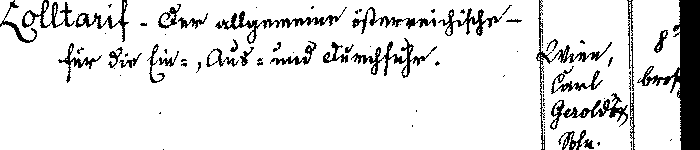 Zolltarif - Der allgemeine österreichische -
für die Ein-, Aus- und Durchfuhr.
Wien,
Carl
Gerold's
Sohn.
8°